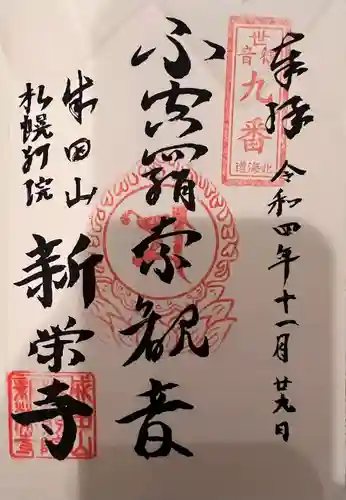 奉拝
令和四年十一月廿九日
九番
北海道
不空羂索観音
成田山
札幌別院
新栄寺